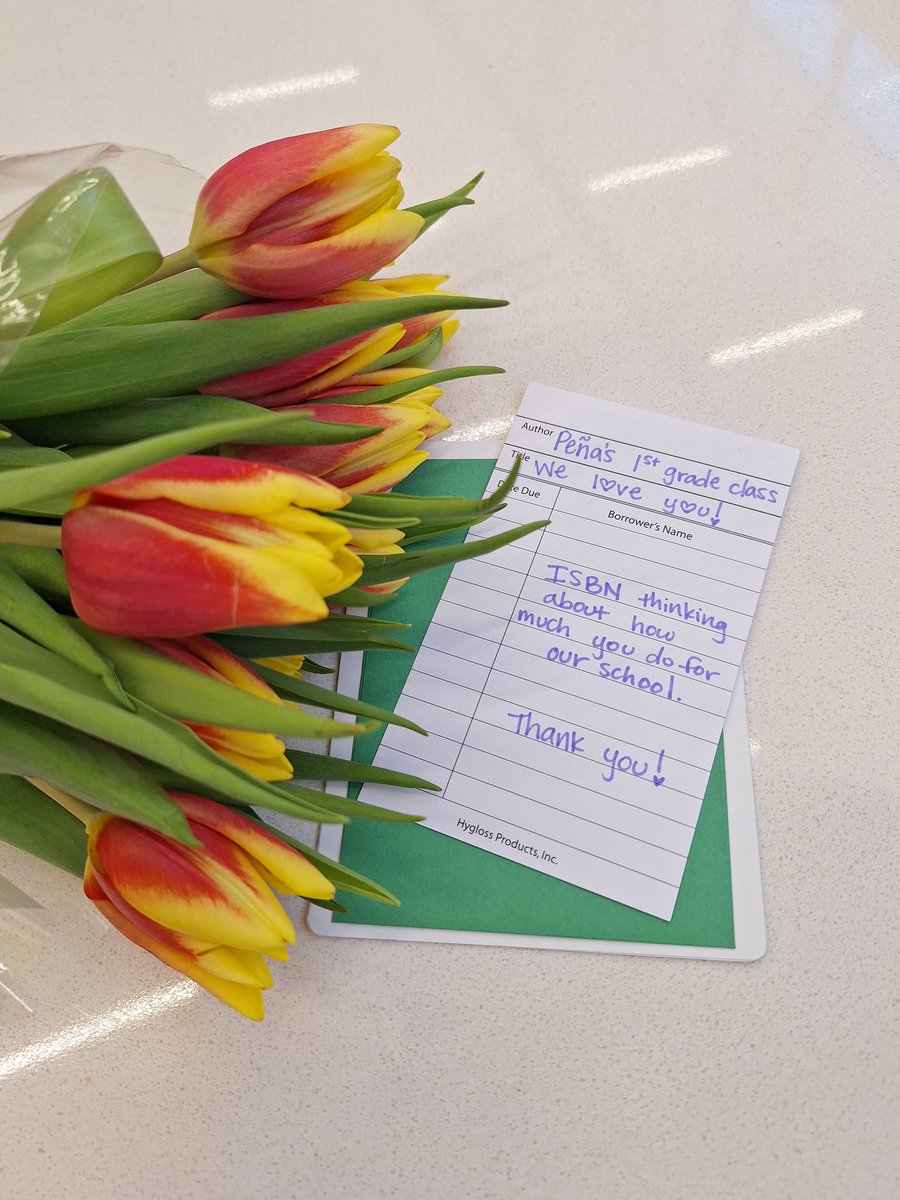 Author Peña's 1st grade class
Title We love you!
Date Due
Borrower's Name
ISBN thinking
about how
much you do for
our school.
Thank you!
Hygloss Products, Inc.